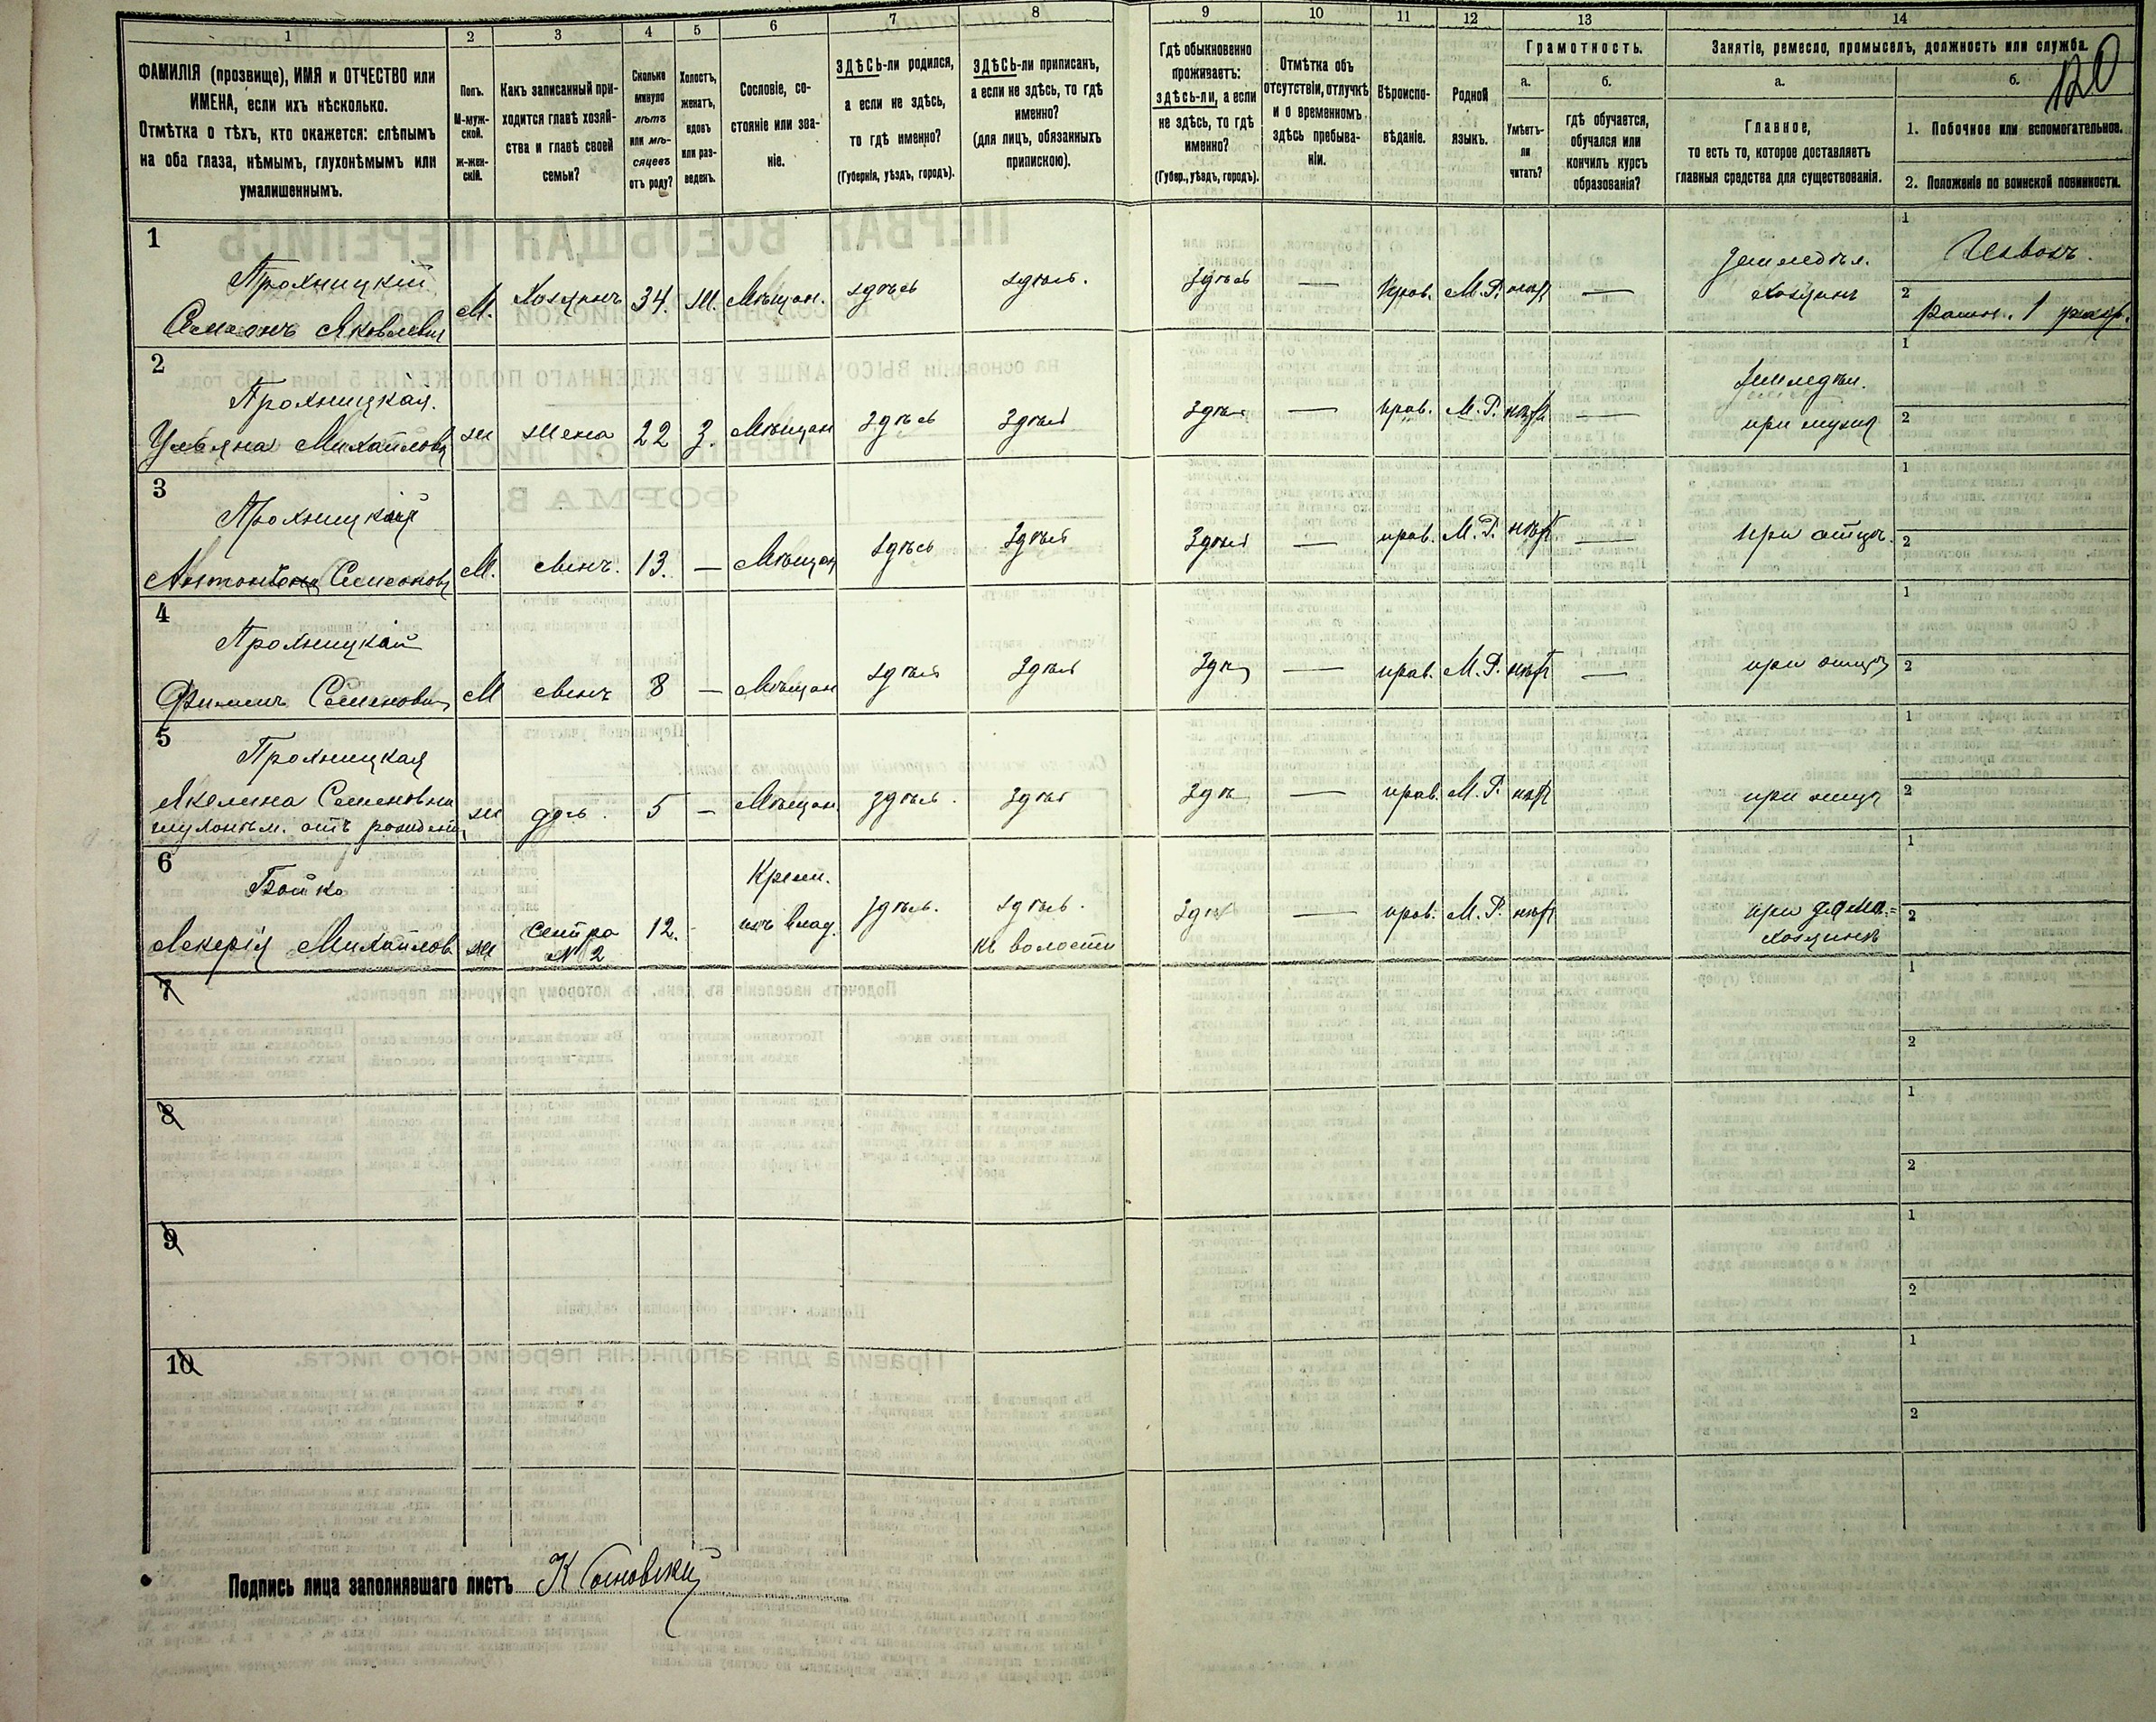 1 2 3 4 5 6 7 8 9 10 11 12 13 14
ФАМИЛІЯ (прозвище), ИМЯ и ОТЧЕСТВО или
ИМЕНА, если ихъ нѣсколько.
Отмѣтка о тѣхъ, кто окажется: слѣпымъ
на оба глаза, нѣмымъ, глухонѣмымъ или
умалишеннымъ.
Полъ.
М-муж-
ской.
ж-жен-
скій.
Какъ записанный при-
ходится главѣ хозяй-
ства и главѣ своей
семьи?
Сколько
минуло
лѣтъ
или мѣ-
сяцевъ
отъ роду?
Холостъ,
женатъ,
вдовъ
или раз-
веденъ.
Сословіе, со-
стояніе или зва-
ніе.
ЗДѢСЬ-ли родился,
а если не здѣсь,
то гдѣ именно?
(Губернія, уѣздъ, городъ).
ЗДѢСЬ-ли приписанъ,
а если не здѣсь, то гдѣ
именно?
(для лицъ, обязанныхъ
припискою).
Гдѣ обыкновенно
проживаетъ:
здѣсь-ли, а если
не здѣсь, то гдѣ
именно?
(Губер., уѣздъ, городъ).
Отмѣтка объ
отсутствіи, отлучкѣ
и о временномъ
здѣсь пребыва-
ніи.
Вѣроиспо-
вѣданіе.
Родной
языкъ.
Грамотность.
а.
Умѣетъ-
ли
читать?
б.
гдѣ обучается,
обучался или
кончилъ курсъ
образованія?
Занятіе, ремесло, промыселъ, должность или служба.
120
а.
Главное,
то есть то, которое доставляетъ
главныя средства для существованія.
б.
1. Побочное или вспомогательное.
2. Положеніе по воинской повинности.
1
Семионъ Яковлевич
М. Хозяинъ 34. Ж. Мѣщан. здѣсь здѣсь. Здѣсь — Прав. М.Р. нѣт —
Земледѣл.
хозяинъ
1
2
1 разр.
2
Ульяна Михайлова
ж жена 22 З. Мѣщан здѣсь Здѣсь Здѣсь — прав. М.Р. нѣт —
Земледѣл.
при мужѣ
1
2
3
Семенов
М. сынъ. 13. — Мѣщан здѣсь Здѣсь Здѣсь — прав. М.Р. нѣт —
при отцѣ.
1
2
4
Семенович
М сынъ 8 — Мѣщан здѣсь Здѣсь Здѣсь — прав. М.Р. нѣт —
при отцѣ
1
2
5
Акелина Семеновна
глухонѣм. отъ рожденія
ж дочь. 5 — Мѣщан. здѣсь. Здѣсь Здѣсь — прав. М.Р. нѣт
при отцѣ
1
2
6
Бойко
Лекерія Михайлов
ж сестра
№ 2
12. -
Крест.
изъ влад.
здѣсь.
здѣсь.
къ волости
Здѣсь — прав. М.Р. нѣт
при дома=
хозяинѣ
1
2
7
1
2
8
1
2
9
1
2
10
1
2
Подпись лица заполнявшаго листъ